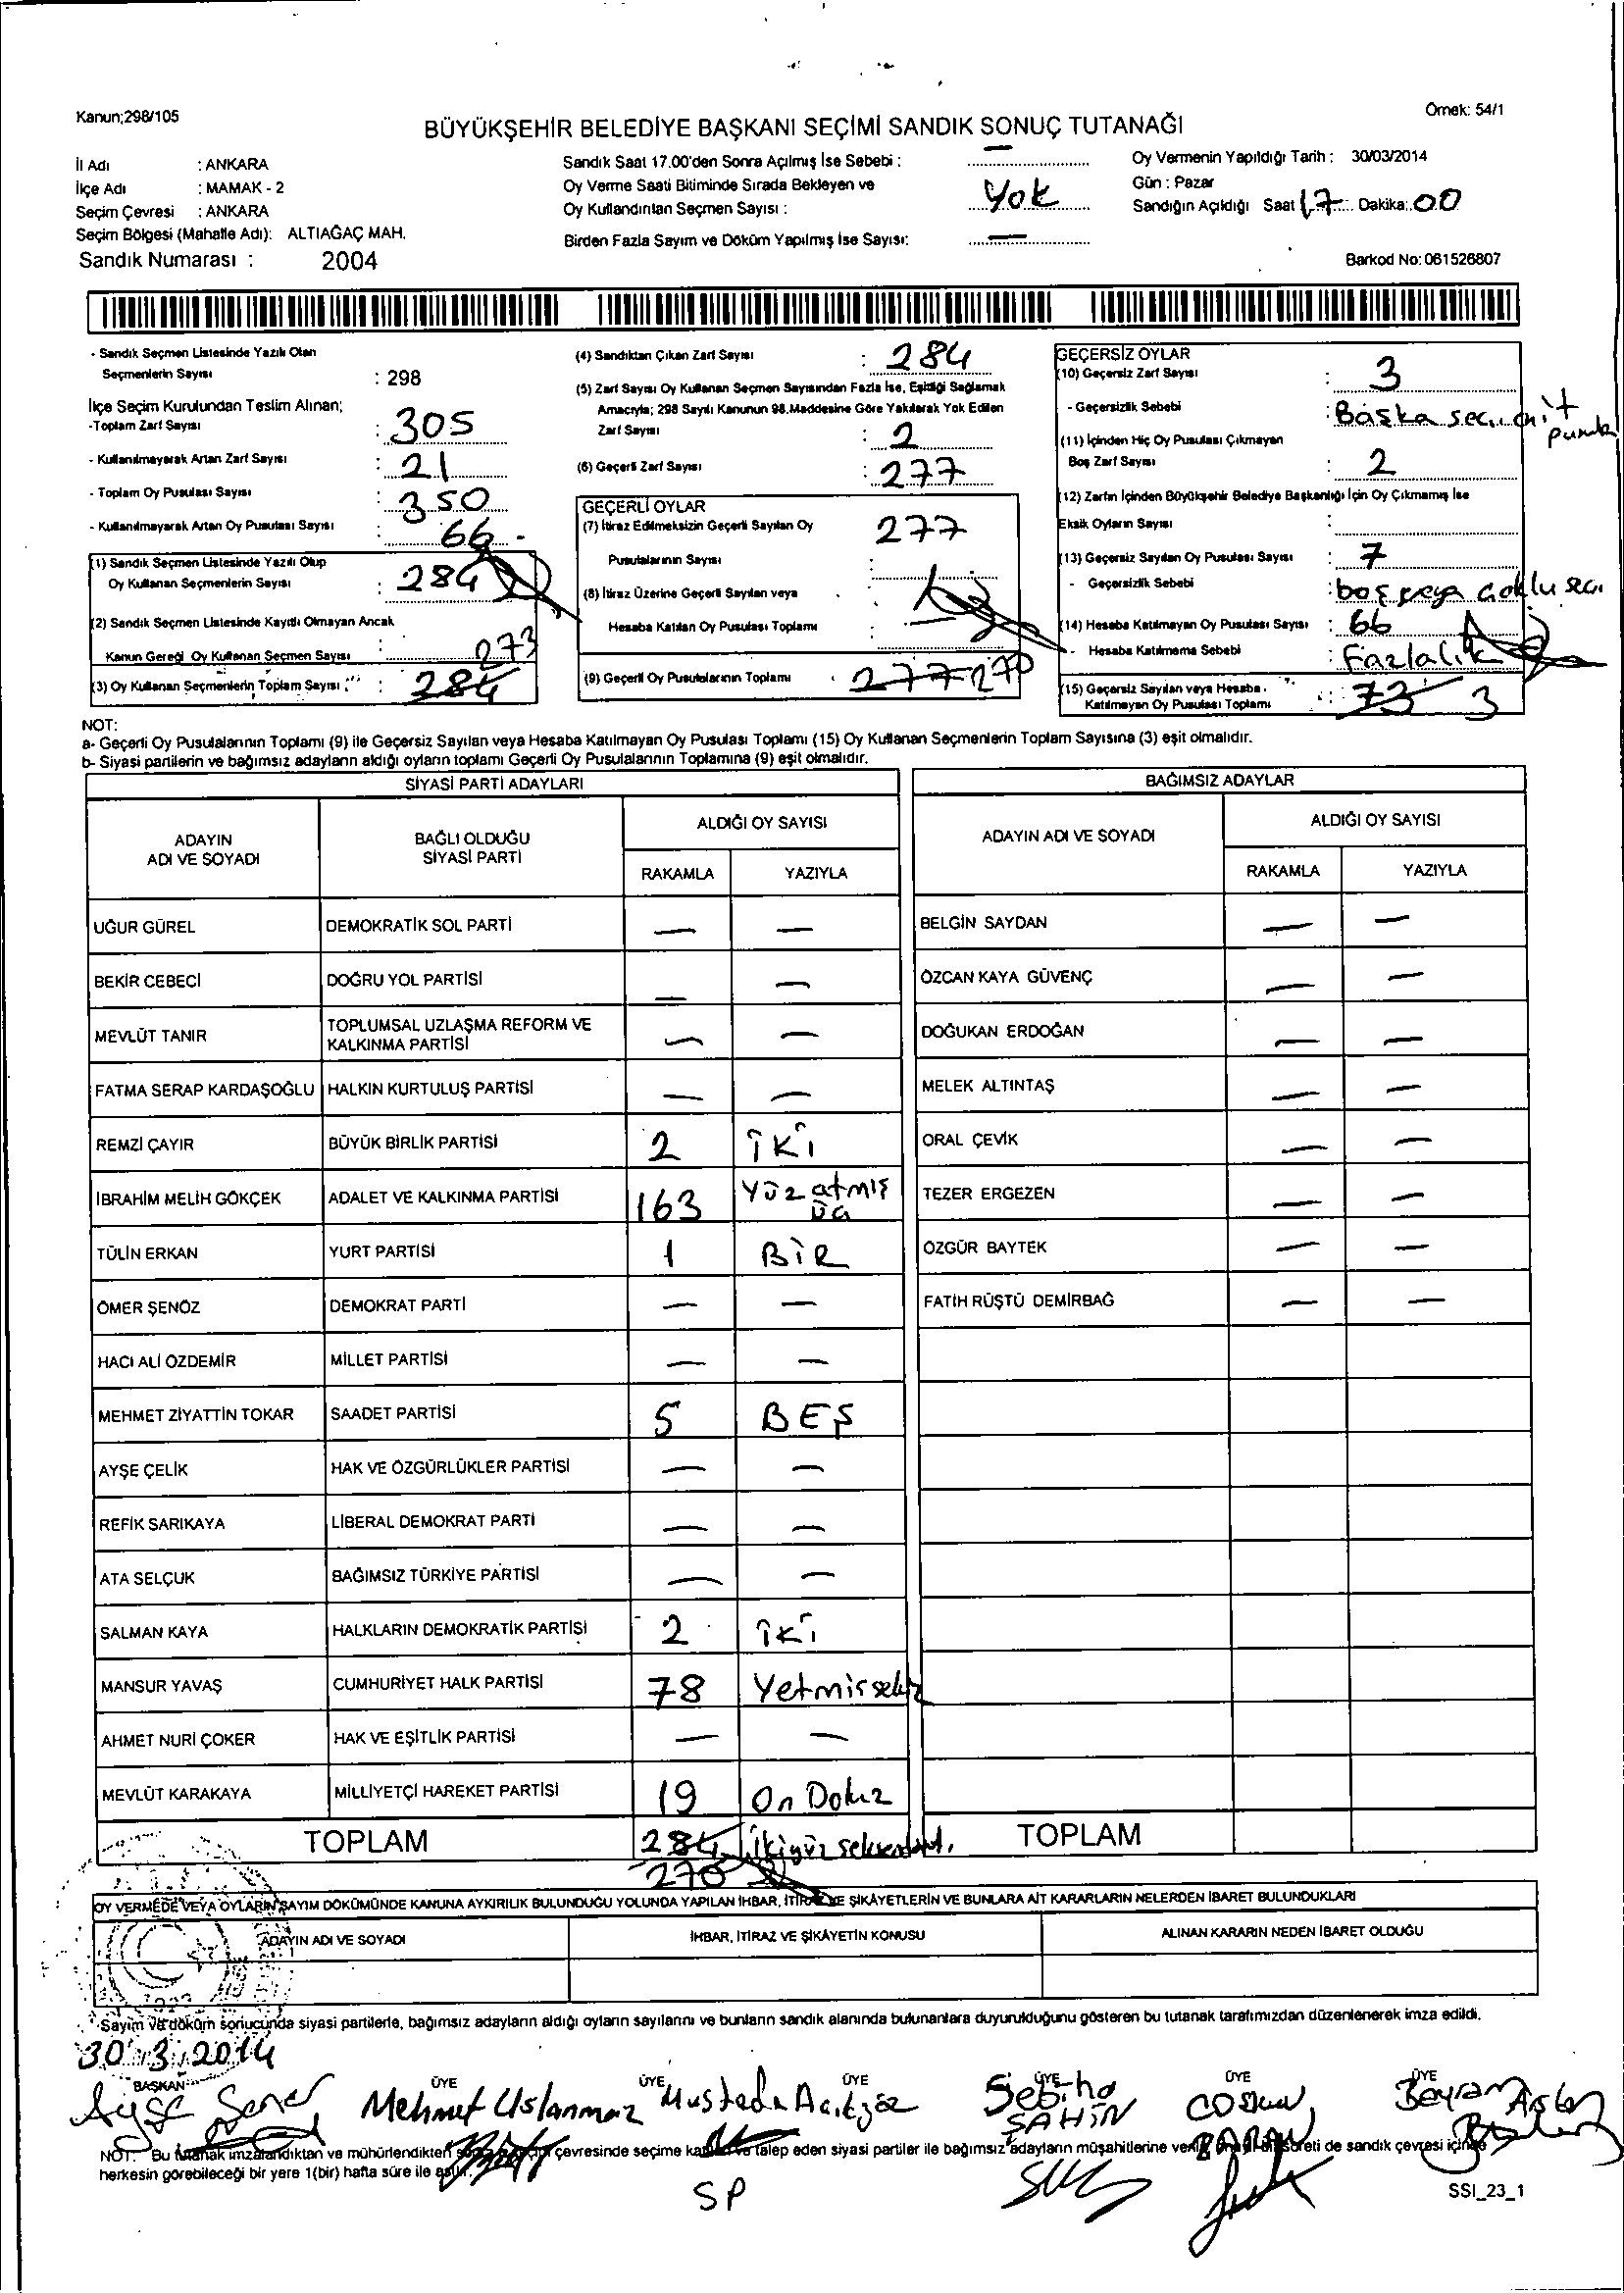 Kanun;298/105
Örnek: 54/1
BÜYÜKŞEHİR BELEDİYE BAŞKANI SEÇİMİ SANDIK SONUÇ TUTANAĞI
İl Adı : ANKARA
İlçe Adı : MAMAK - 2
Seçim Çevresi : ANKARA
Seçim Bölgesi (Mahalle Adı): ALTIAĞAÇ MAH.
Sandık Numarası : 2004
Sandık Saat 17.00'den Sonra Açılmış İse Sebebi : —
Oy Verme Saati Bitiminde Sırada Bekleyen ve
Oy Kullandırılan Seçmen Sayısı : Yok
Birden Fazla Sayım ve Döküm Yapılmış İse Sayısı: —
Oy Vermenin Yapıldığı Tarih : 30/03/2014
Gün : Pazar
Sandığın Açıldığı Saat 17 Dakika: 00
Barkod No: 061526807
- Sandık Seçmen Listesinde Yazılı Olan
Seçmenlerin Sayısı : 298
İlçe Seçim Kurulundan Teslim Alınan;
-Toplam Zarf Sayısı : 305
- Kullanılmayarak Artan Zarf Sayısı : 21
- Toplam Oy Pusulası Sayısı : 350
- Kullanılmayarak Artan Oy Pusulası Sayısı : 66
(1) Sandık Seçmen Listesinde Yazılı Olup
Oy Kullanan Seçmenlerin Sayısı : 284
(2) Sandık Seçmen Listesinde Kayıtlı Olmayan Ancak
Kanun Gereği Oy Kullanan Seçmen Sayısı :
273
(3) Oy Kullanan Seçmenlerin Toplam Sayısı : 284
(4) Sandıktan Çıkan Zarf Sayısı : 284
(5) Zarf Sayısı Oy Kullanan Seçmen Sayısından Fazla İse, Eşitliği Sağlamak
Amacıyla; 298 Sayılı Kanunun 98.Maddesine Göre Yakılarak Yok Edilen
Zarf Sayısı : 2
(6) Geçerli Zarf Sayısı : 277
GEÇERLİ OYLAR
(7) İtiraz Edilmeksizin Geçerli Sayılan Oy
Pusulalarının Sayısı : 277
(8) İtiraz Üzerine Geçerli Sayılan veya
Hesaba Katılan Oy Pusulası Toplamı :
(9) Geçerli Oy Pusulalarının Toplamı : 277 270
GEÇERSİZ OYLAR
(10) Geçersiz Zarf Sayısı : 3
- Geçersizlik Sebebi : Başka
(11) İçinden Hiç Oy Pusulası Çıkmayan
Boş Zarf Sayısı : 2
(12) Zarfın İçinden Büyükşehir Belediye Başkanlığı İçin Oy Çıkmamış İse
Eksik Oyların Sayısı :
(13) Geçersiz Sayılan Oy Pusulası Sayısı : 7
- Geçersizlik Sebebi : boş veya çoklu seçi
(14) Hesaba Katılmayan Oy Pusulası Sayısı : 66
- Hesaba Katılmama Sebebi : Fazlalık
(15) Geçersiz Sayılan veya Hesaba
Katılmayan Oy Pusulası Toplamı : 73 3
NOT:
a- Geçerli Oy Pusulalarının Toplamı (9) ile Geçersiz Sayılan veya Hesaba Katılmayan Oy Pusulası Toplamı (15) Oy Kullanan Seçmenlerin Toplam Sayısına (3) eşit olmalıdır.
b- Siyasi partilerin ve bağımsız adayların aldığı oyların toplamı Geçerli Oy Pusulalarının Toplamına (9) eşit olmalıdır.
SİYASİ PARTİ ADAYLARI
ADAYIN ADI VE SOYADI BAĞLI OLDUĞU SİYASİ PARTİ ALDIĞI OY SAYISI
RAKAMLA YAZIYLA
UĞUR GÜREL DEMOKRATİK SOL PARTİ — —
BEKİR CEBECİ DOĞRU YOL PARTİSİ — —
MEVLÜT TANIR TOPLUMSAL UZLAŞMA REFORM VE KALKINMA PARTİSİ — —
FATMA SERAP KARDAŞOĞLU HALKIN KURTULUŞ PARTİSİ — —
REMZİ ÇAYIR BÜYÜK BİRLİK PARTİSİ 2 İKİ
İBRAHİM MELİH GÖKÇEK ADALET VE KALKINMA PARTİSİ 163 Yüz atmış üç
TÜLİN ERKAN YURT PARTİSİ 1 BİR
ÖMER ŞENÖZ DEMOKRAT PARTİ — —
HACI ALİ ÖZDEMİR MİLLET PARTİSİ — —
MEHMET ZİYATTİN TOKAR SAADET PARTİSİ 5 BEŞ
AYŞE ÇELİK HAK VE ÖZGÜRLÜKLER PARTİSİ — —
REFİK SARIKAYA LİBERAL DEMOKRAT PARTİ — —
ATA SELÇUK BAĞIMSIZ TÜRKİYE PARTİSİ — —
SALMAN KAYA HALKLARIN DEMOKRATİK PARTİSİ 2 İKİ
MANSUR YAVAŞ CUMHURİYET HALK PARTİSİ 78 Yetmiş sekiz
AHMET NURİ ÇOKER HAK VE EŞİTLİK PARTİSİ — —
MEVLÜT KARAKAYA MİLLİYETÇİ HAREKET PARTİSİ 19 On Dokuz
TOPLAM 284 İkiyüz seksendört.
270
BAĞIMSIZ ADAYLAR
ADAYIN ADI VE SOYADI ALDIĞI OY SAYISI
RAKAMLA YAZIYLA
BELGİN SAYDAN — —
ÖZCAN KAYA GÜVENÇ — —
DOĞUKAN ERDOĞAN — —
MELEK ALTINTAŞ — —
ORAL ÇEVİK — —
TEZER ERGEZEN — —
ÖZGÜR BAYTEK — —
FATİH RÜŞTÜ DEMİRBAĞ — —
TOPLAM
OY VERMEDE VEYA OYLARIN SAYIM DÖKÜMÜNDE KANUNA AYKIRILIK BULUNDUĞU YOLUNDA YAPILAN İHBAR, İTİRAZ VE ŞİKAYETLERİN VE BUNLARA AİT KARARLARIN NELERDEN İBARET BULUNDUKLARI
ADAYIN ADI VE SOYADI İHBAR, İTİRAZ VE ŞİKAYETİN KONUSU ALINAN KARARIN NEDEN İBARET OLDUĞU
Sayım ve döküm sonucunda siyasi partilerle, bağımsız adayların aldığı oyların sayılarını ve bunların sandık alanında bulunanlara duyurulduğunu gösteren bu tutanak tarafımızdan düzenlenerek imza edildi.
30.3.2014
BAŞKAN ÜYE ÜYE ÜYE ÜYE ÜYE ÜYE
Ayşe Şener Mehmet Uslanmaz Mustafa Açıkgöz Sebiha ŞAHİN COŞKUN BARAN Bayram Aslan
NOT: Bu tutanak imzalandıktan ve mühürlendikten çevresinde seçime katılan ve talep eden siyasi partiler ile bağımsız adayların müşahitlerine sureti de sandık çevresi içinde
herkesin görebileceği bir yere 1(bir) hafta süre ile asılır.
SP
SSI_23_1